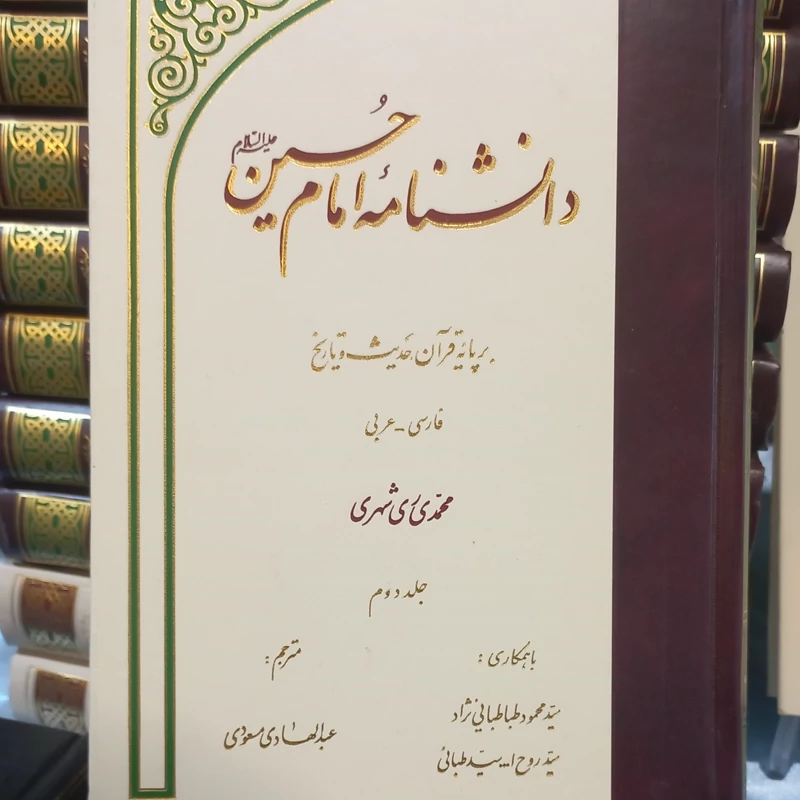 دانشنامهٔ امام حسین علیه السّلام
بر پایهٔ قرآن، حدیث و تاریخ
فارسی - عربی
محمّدی ری شهری
جلد دوم
با همکاری :
سیّد محمود طباطبائی نژاد
سیّد روح ا... سیّد طبائی
مترجم :
عبدالهادی مسعودی